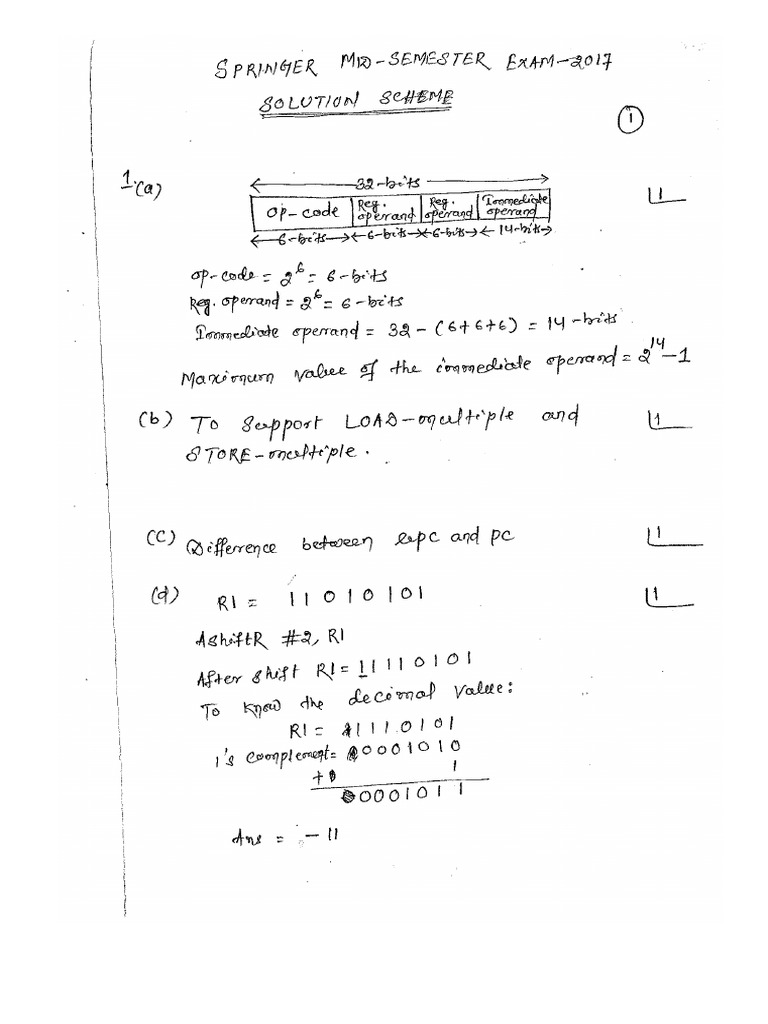 SPRINGER MID-SEMESTER EXAM-2017
SOLUTION SCHEME
1
1.(a)
32-bits
1
Op-code Reg. operrand Reg. operrand Immediate operrand
6-bits 6-bits 6-bits 14-bits
op-code = 2^6 = 6-bits
Reg. operrand = 2^6 = 6-bits
Immediate operrand = 32 - (6+6+6) = 14-bits
Maximum value of the immediate operrand = 2^14 - 1
(b) To Support LOAD-multiple and
1
STORE-multiple.
(c) Difference between epc and pc
1
(d) R1 = 11010101
1
AshiftR #2, R1
After shift R1 = 11110101
To know the decimal value:
R1 = 11110101
1's complement = 00001010
+ 1
00001011
Ans = -11